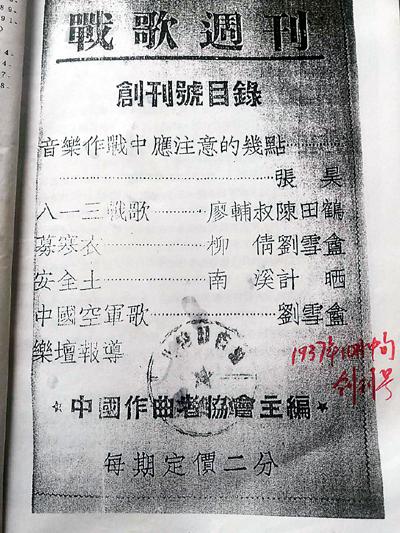 戰歌週刊
創刊號目錄
音樂作戰中應注意的幾點
張昊
八一三戰歌 廖輔叔陳田鶴
募寒衣 柳倩劉雪盦
安全土 南溪計晒
中國空軍歌 劉雪盦
樂壇報導
中國作曲者協會主編
每期定價二分
1937年10月中旬
創刊号